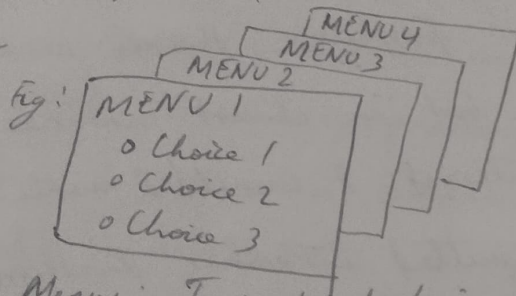 MENU 4
MENU 3
MENU 2
Fig:
MENU 1
o Choice 1
o Choice 2
o Choice 3